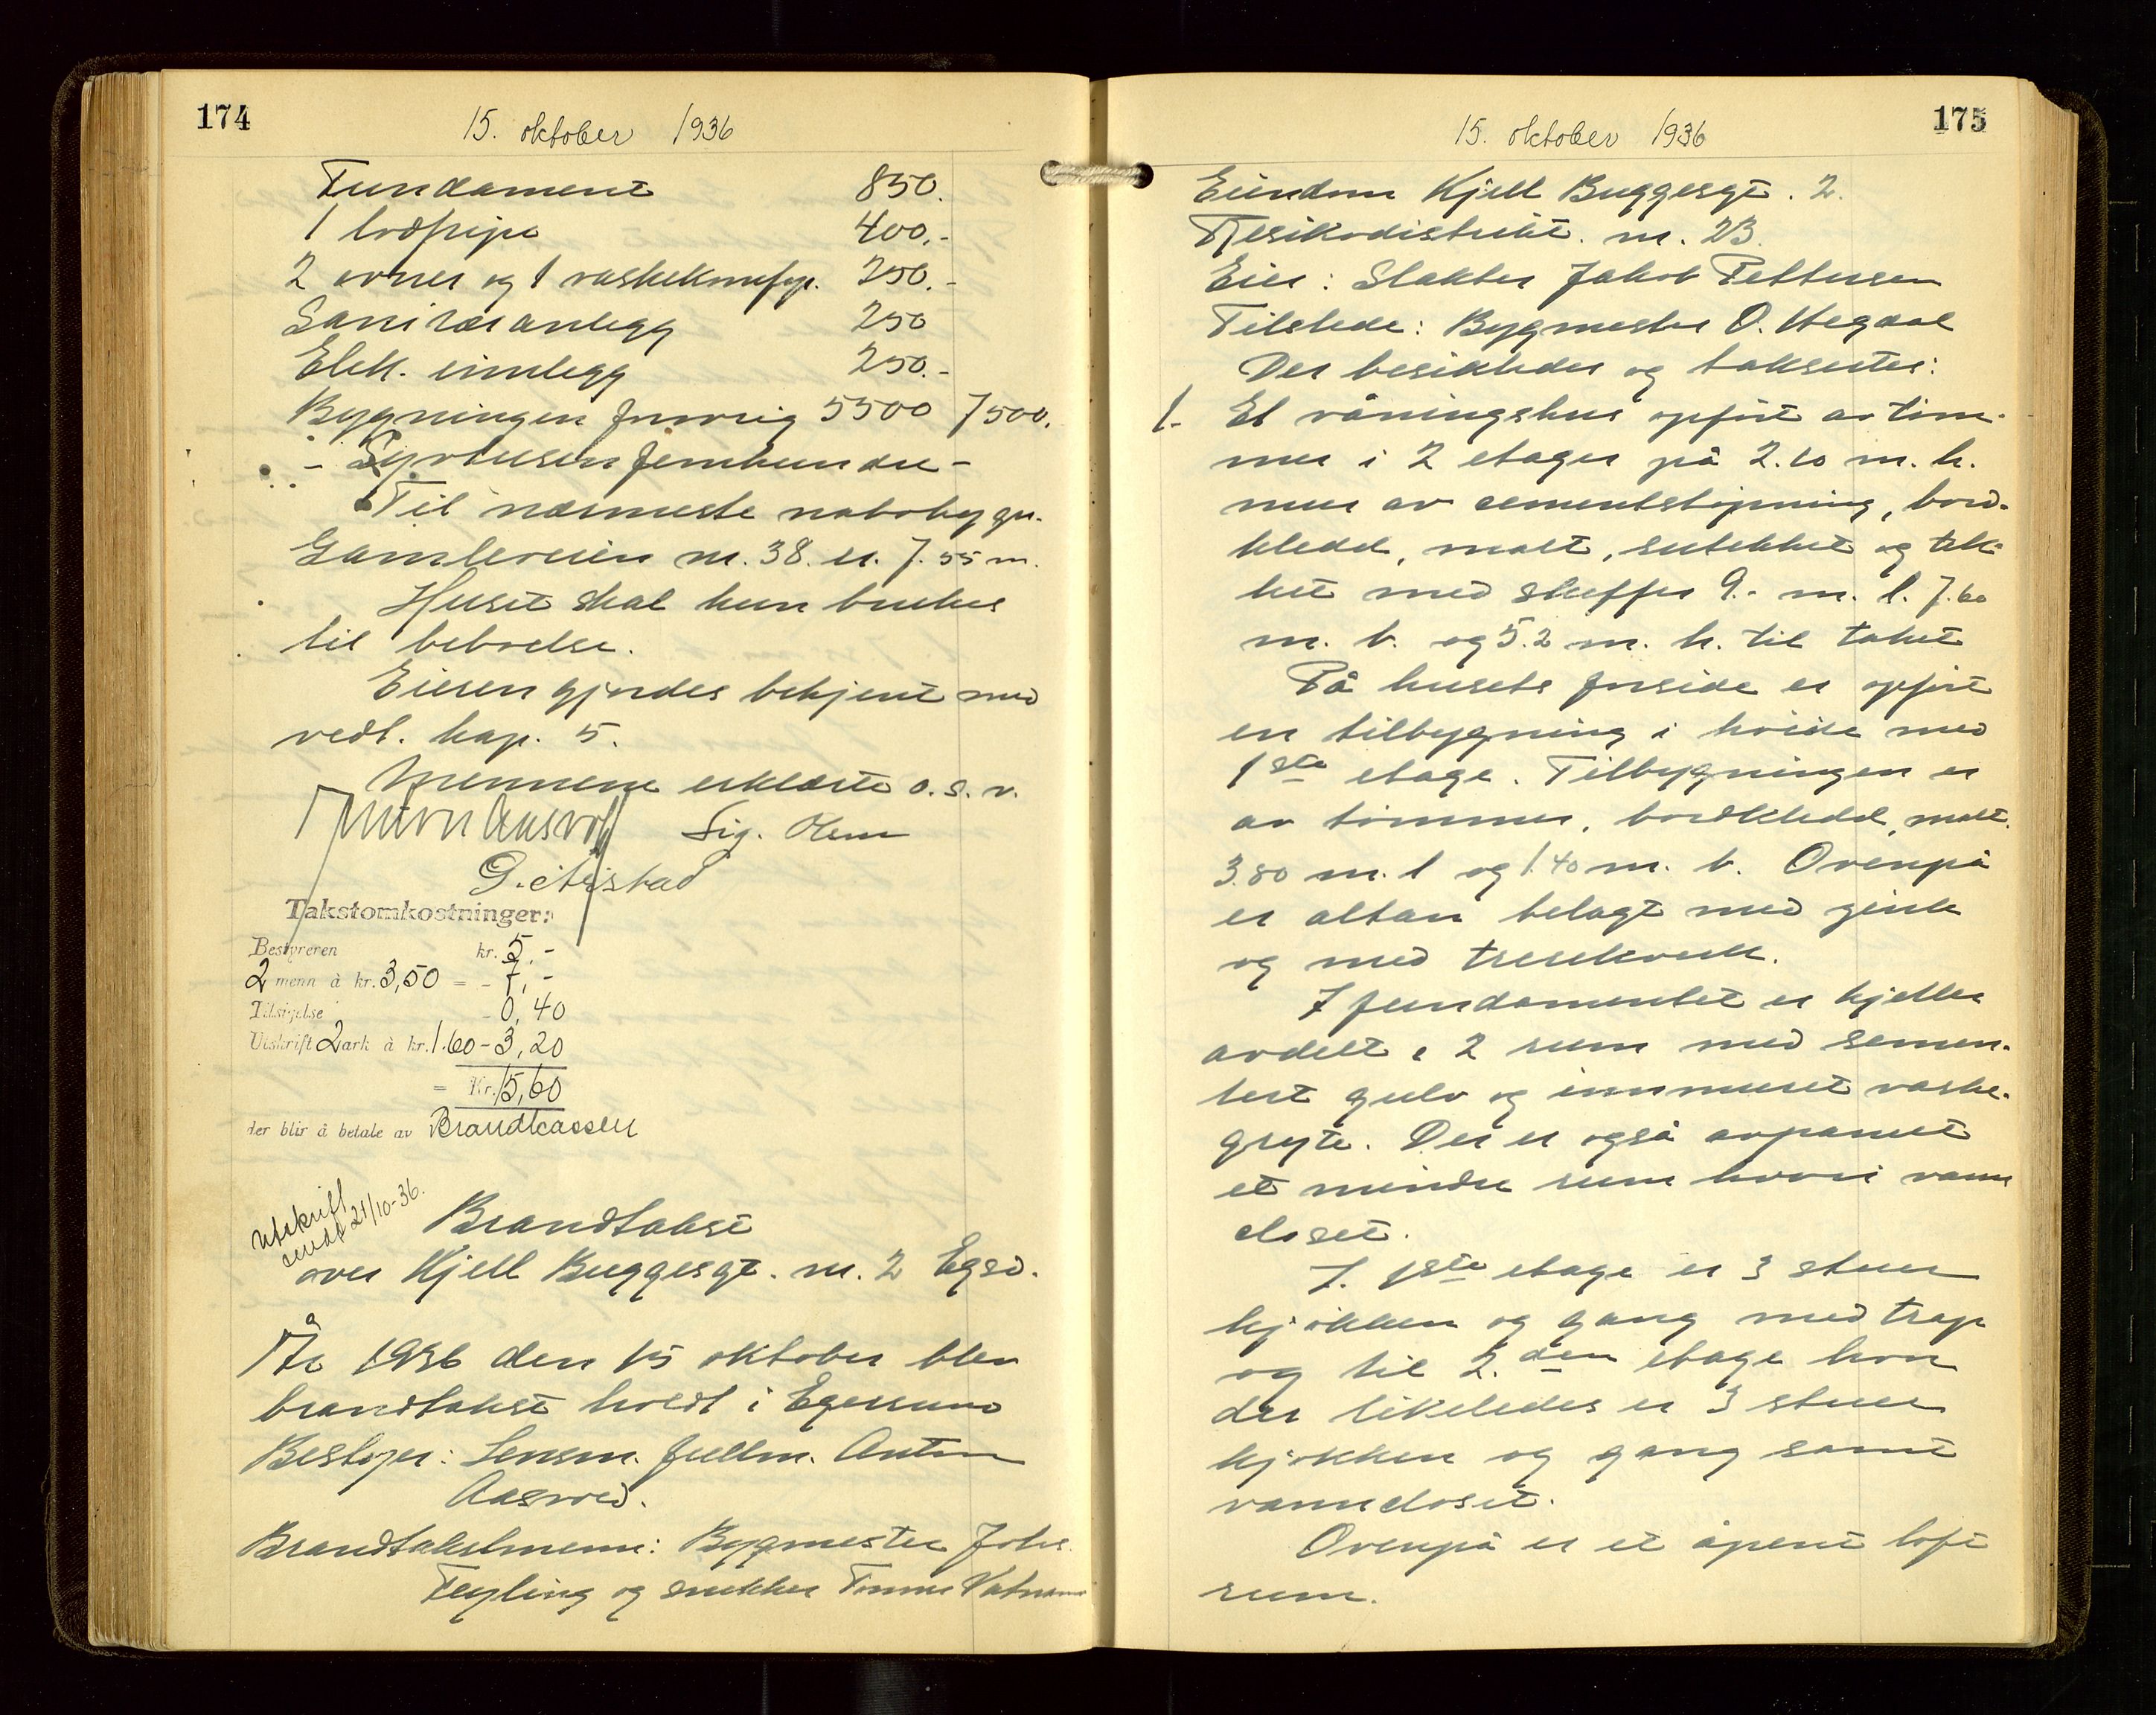 174
15. oktober 1936
Fundament 850.
1 løpepipe 400.-
2 ovner og 1 vaskekomfyr. 250.-
Sanitæranlegg 250
Elek. innlegg 250.-
Bygningen forøvrig 5500 7500.
- Syvtusenfemhundre -
Til nærmeste nabobygn.
Gamleveien nr. 38. er. 7.55 m.
Huset skal kun brukes
til beboelse.
Eieren gjordes bekjent med
vedt. kap. 5.
Mennene erklærte o.s.v.
Anton Aasvold Sig. Olsen
Takstomkostninger:
Bestyreren kr. 5,-
2 menn à kr. 3,50 = - 7,-
Tilsigelse - 0,40
Utskrift 2 ark à kr. 1.60 - 3,20
= Kr. 15,60
der blir å betale av Brandkassen
Utskrift
sendt 21/10-36.
Brandtakst
over Kjell Buggesgt. nr. 2 Egsd.
År 1936 den 15 oktober blev
brandtakst holdt i Egersund
Bestyrer: Lensm. fullm. Anton
Aasvold.
Brandtakstmenn: Bygmester Johs.
Feyling og snekker Tønnes
175
15. oktober 1936
Eiendom Kjell Buggesgt. 2.
Risikodistrikt. nr. 2B.
Eier: Slakter Jakob Pettersen
Tilstede: Bygmester O. Hegdal
Der besiktedes og taksertes:
1. Et våningshus opført av tøm-
mer i 2 etager på 2.10 m. h.
mur av cementstøpning, bord-
kledd, malt, sutekket og tek-
ket med skiffer 9.- m. l. 7.60
m. b. og 5.2 m. h. til taket
På husets forside er opført
en tilbygning i høide med
1ste etage. Tilbygningen er
av tømmer, bordkledd, malt.
3.80 m. l og 1.40 m. b. Ovenpå
er altan belagt med zink
og med trerekverk.
I fundamentet er kjeller
avdelt i 2 rum med semen-
tert gulv og innmuret vaske-
gryte. Der er også avpanelt
et mindre rum hvori vann
closet.
I. 1ste etage er 3 stuer
kjøkken og gang med trap
og til 2.den etage hvor
der likeledes er 3 stuer
kjøkken og gang samt
vanncloset.
Ovenpå er et åpent loft
rum.